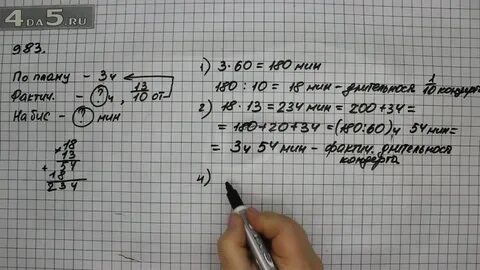 4DA5.RU
983.
По плану - 3ч
Фактич. - ? ч, 13/10 от
На бис - ? мин
× 18
13
+ 54
18
234
1) 3·60 = 180 мин
180 : 10 = 18 мин - длительность 1/10 концерта
2) 18·13 = 234 мин = 200+34 =
= 180+20+34 = (180:60)ч 54 мин =
= 3ч 54 мин - фактич. длительность
концерта
4)